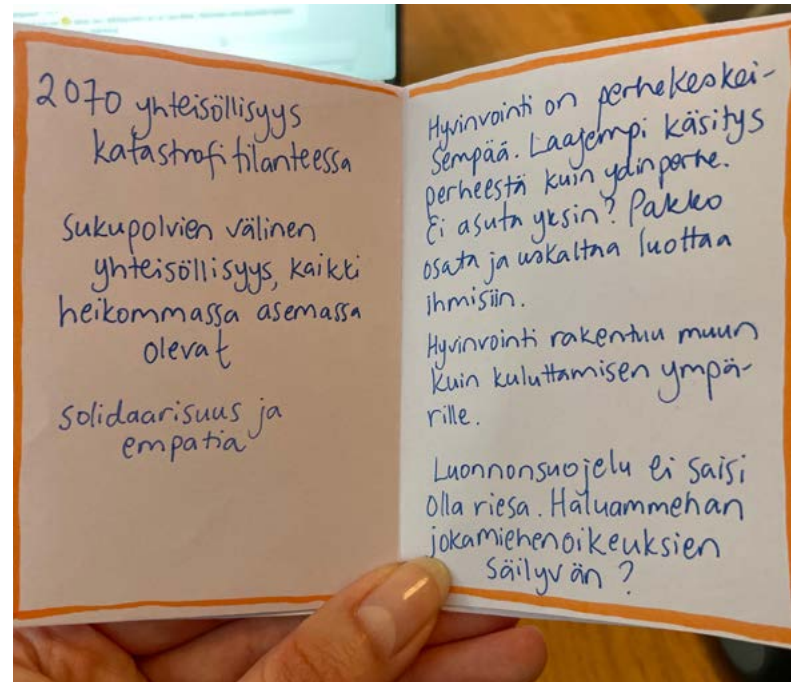 2070 yhteisöllisyys
katastrofitilanteessa
sukupolvien välinen
yhteisöllisyys, kaikki
heikommassa asemassa
olevat
solidaarisuus ja
empatia
Hyvinvointi on perhekeskei-
sempää. Laajempi käsitys
perheestä kuin ydinperhe.
Ei asuta yksin? Pakko
osata ja uskaltaa luottaa
ihmisiin.
Hyvinvointi rakentuu muun
kuin kuluttamisen ympä-
rille.
Luonnonsuojelu ei saisi
olla riesa. Haluammehan
jokamiehenoikeuksien
säilyvän?